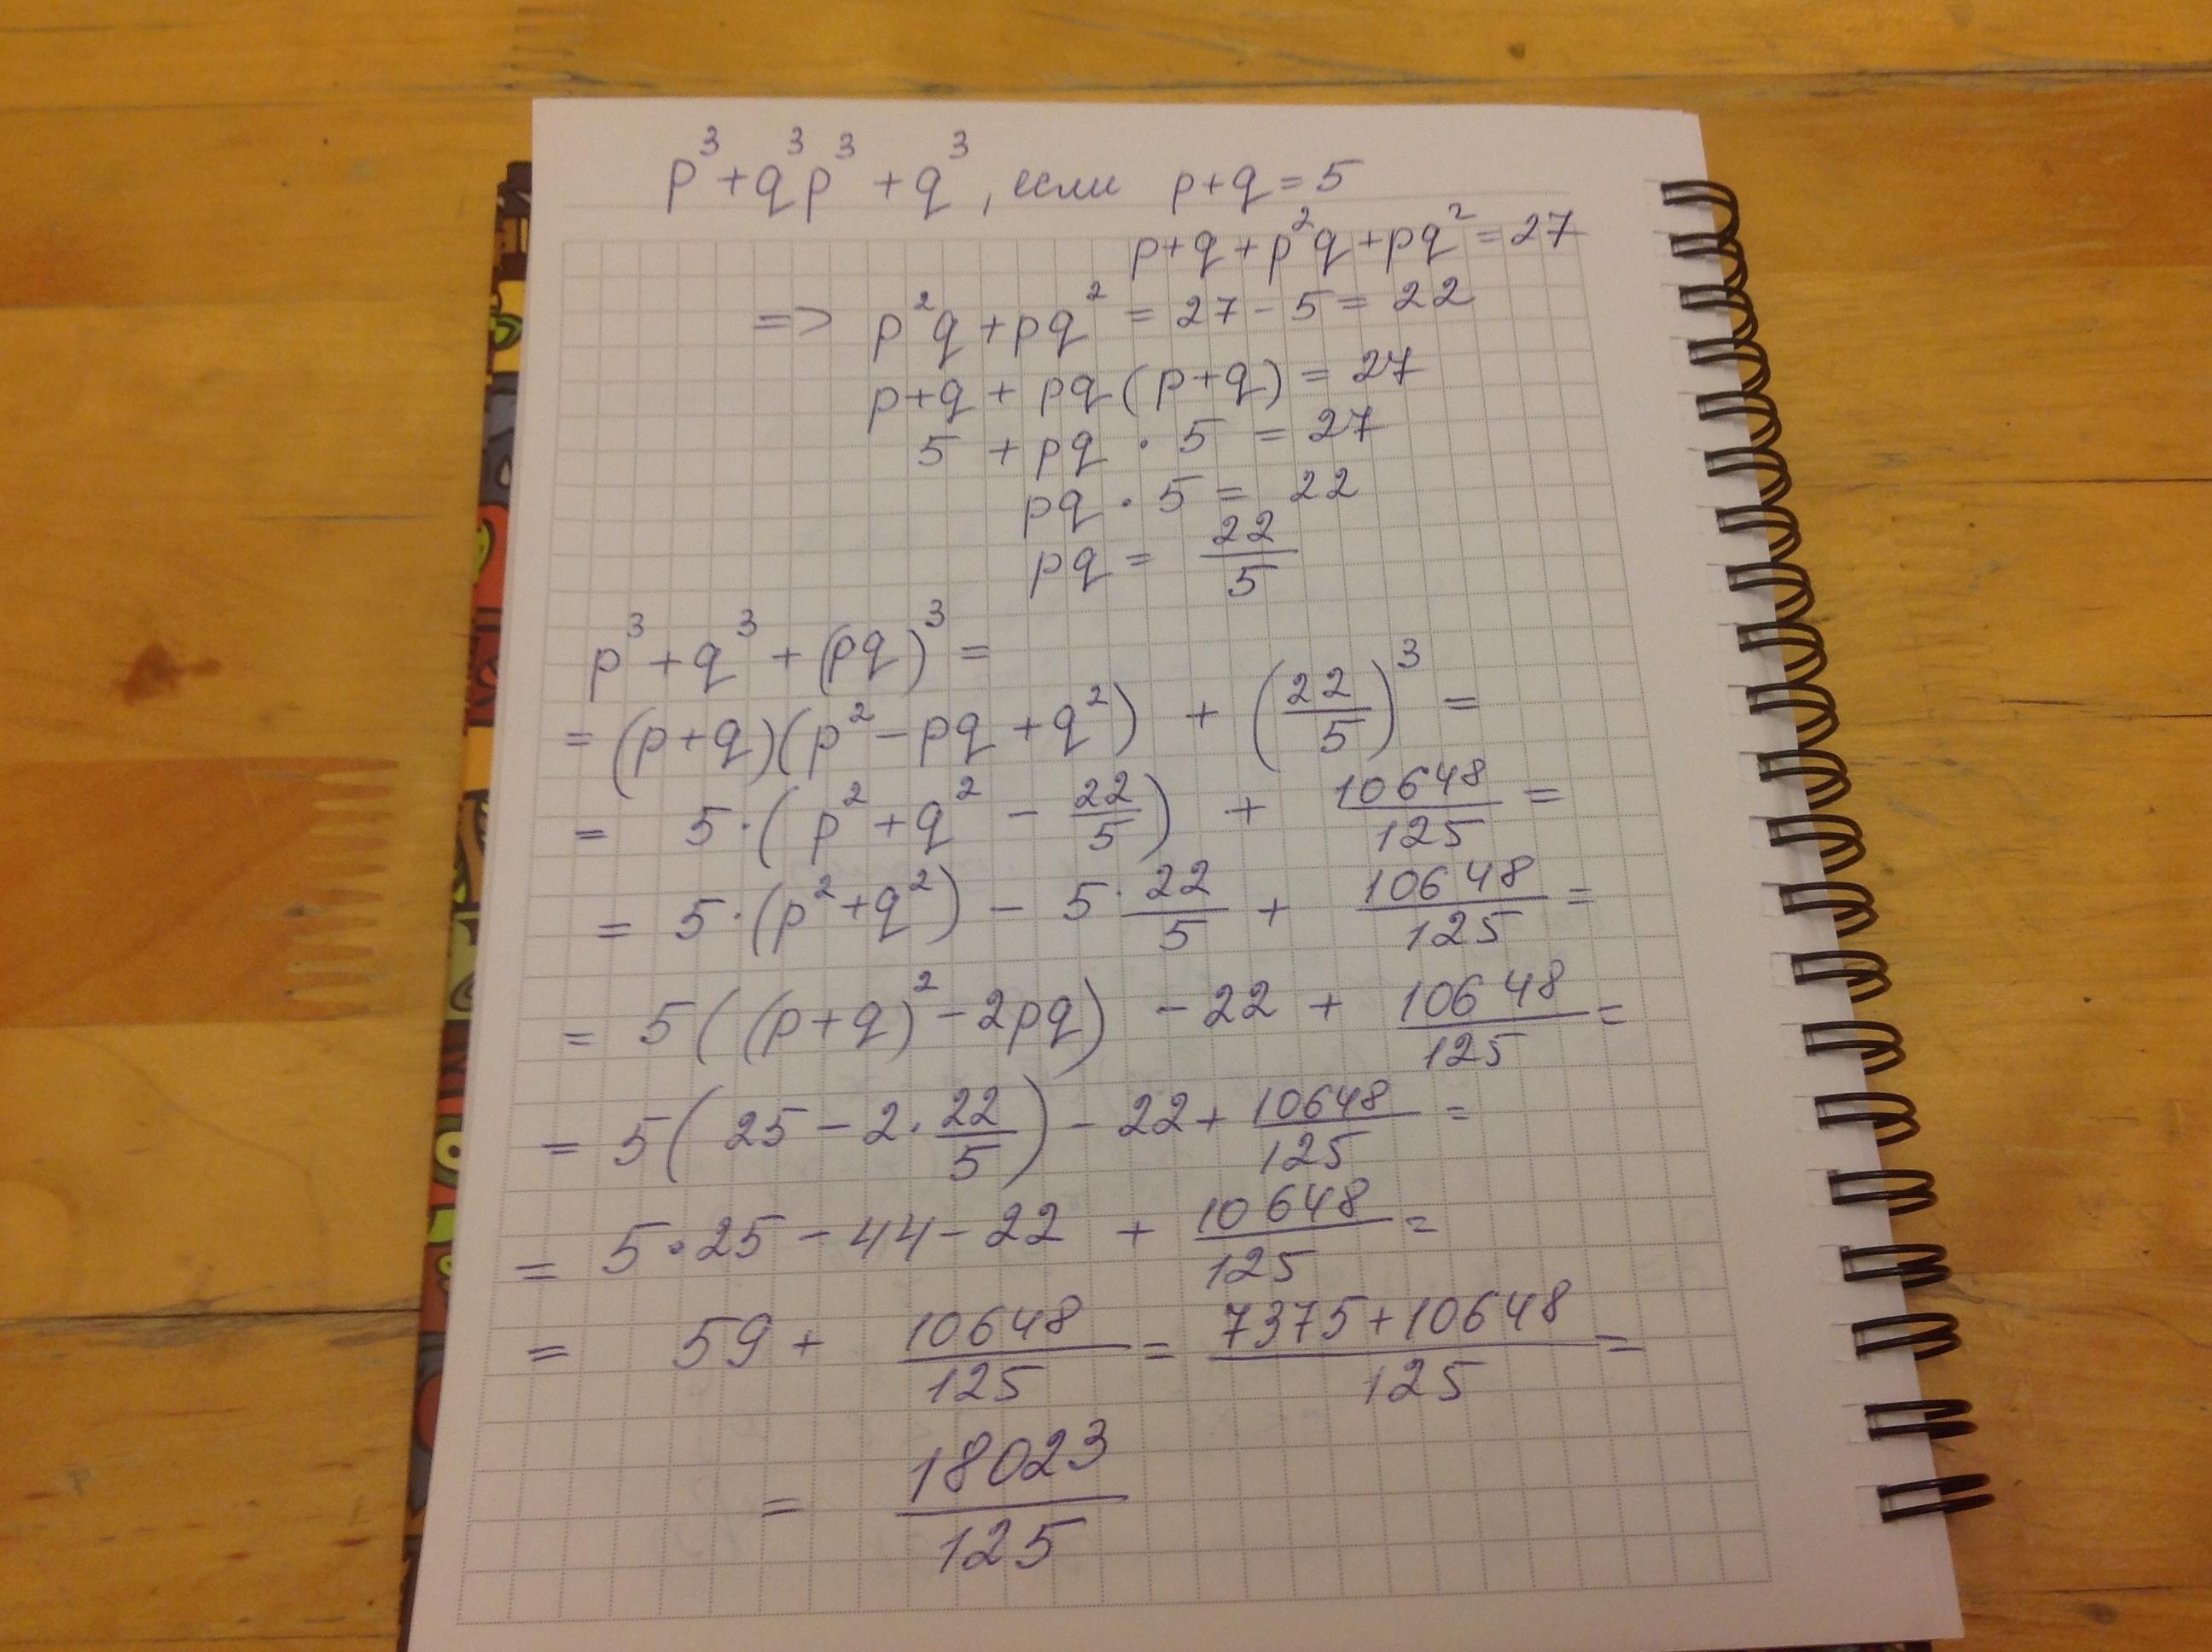 p³+q³p³+q³, если p+q=5
p+q+p²q+pq²=27
=> p²q+pq²=27-5=22
p+q+pq(p+q)=27
5+pq·5=27
pq·5=22
pq=22/5
p³+q³+(pq)³=
=(p+q)(p²-pq+q²)+(22/5)³=
=5·(p²+q²-22/5)+10648/125=
=5·(p²+q²)-5·22/5+10648/125=
=5((p+q)²-2pq)-22+10648/125=
=5(25-2·22/5)-22+10648/125=
=5·25-44-22+10648/125=
=59+10648/125=7375+10648/125=
=18023/125